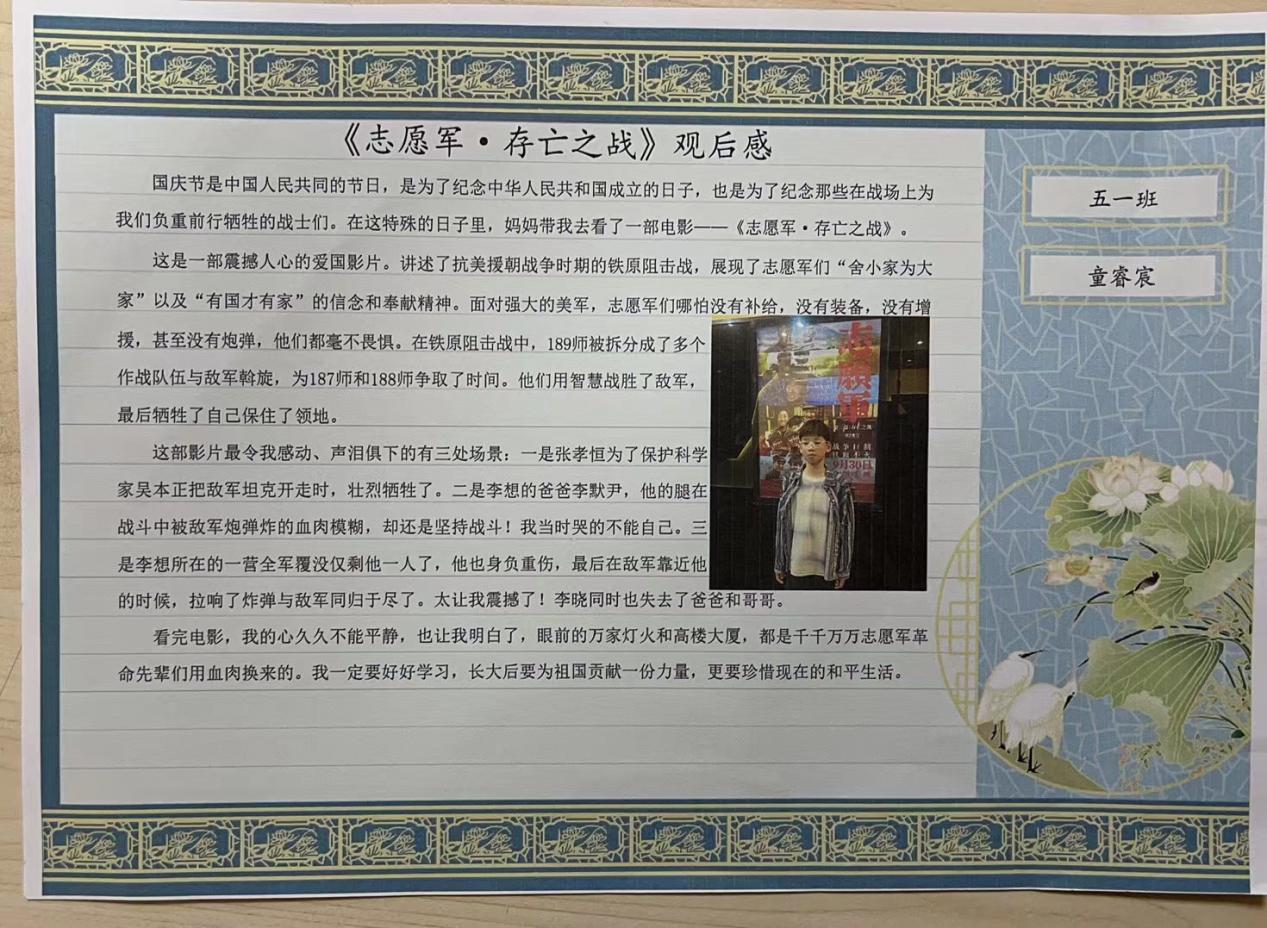 《志愿军·存亡之战》观后感
国庆节是中国人民共同的节日，是为了纪念中华人民共和国成立的日子，也是为了纪念那些在战场上为
我们负重前行牺牲的战士们。在这特殊的日子里，妈妈带我去看了一部电影——《志愿军·存亡之战》。
这是一部震撼人心的爱国影片。讲述了抗美援朝战争时期的铁原阻击战，展现了志愿军们“舍小家为大
家”以及“有国才有家”的信念和奉献精神。面对强大的美军，志愿军们哪怕没有补给，没有装备，没有增
援，甚至没有炮弹，他们都毫不畏惧。在铁原阻击战中，189师被拆分成了多个
作战队伍与敌军斡旋，为187师和188师争取了时间。他们用智慧战胜了敌军，
最后牺牲了自己保住了领地。
这部影片最令我感动、声泪俱下的有三处场景：一是张孝恒为了保护科学
家吴本正把敌军坦克开走时，壮烈牺牲了。二是李想的爸爸李默尹，他的腿在
战斗中被敌军炮弹炸的血肉模糊，却还是坚持战斗！我当时哭的不能自己。三
是李想所在的一营全军覆没仅剩他一人了，他也身负重伤，最后在敌军靠近他
的时候，拉响了炸弹与敌军同归于尽了。太让我震撼了！李晓同时也失去了爸爸和哥哥。
看完电影，我的心久久不能平静，也让我明白了，眼前的万家灯火和高楼大厦，都是千千万万志愿军革
命先辈们用血肉换来的。我一定要好好学习，长大后要为祖国贡献一份力量，更要珍惜现在的和平生活。
五一班
童睿宸
志愿軍
9月30日